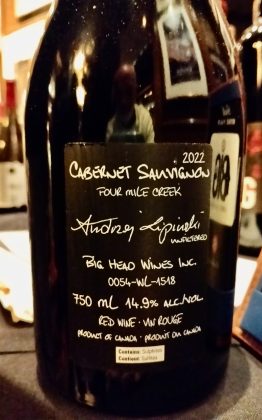 2022
CABERNET SAUVIGNON
FOUR MILE CREEK
Andrzej Lipinski
UNFILTERED
BIG HEAD WINES INC.
0054-WL-1518
750 mL 14.9% ALC./VOL.
RED WINE · VIN ROUGE
PRODUCT OF CANADA · PRODUIT DU CANADA
Contains: Sulphites
Contient: Sulfites